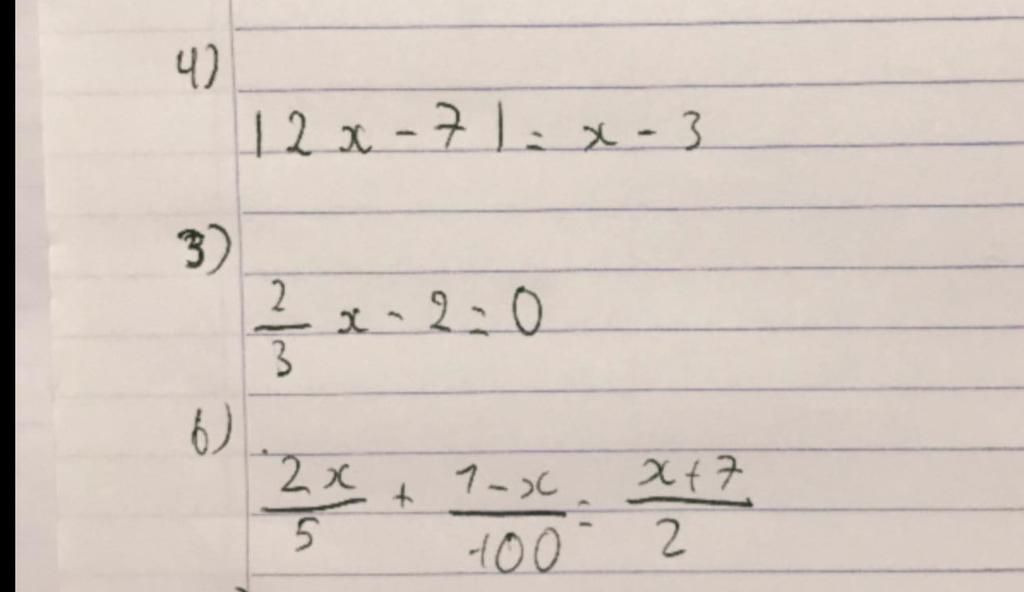 4)
|2x-7|=x-3
3)
2/3 x-2=0
6)
2x/5 + 1-x/100 = x+7/2